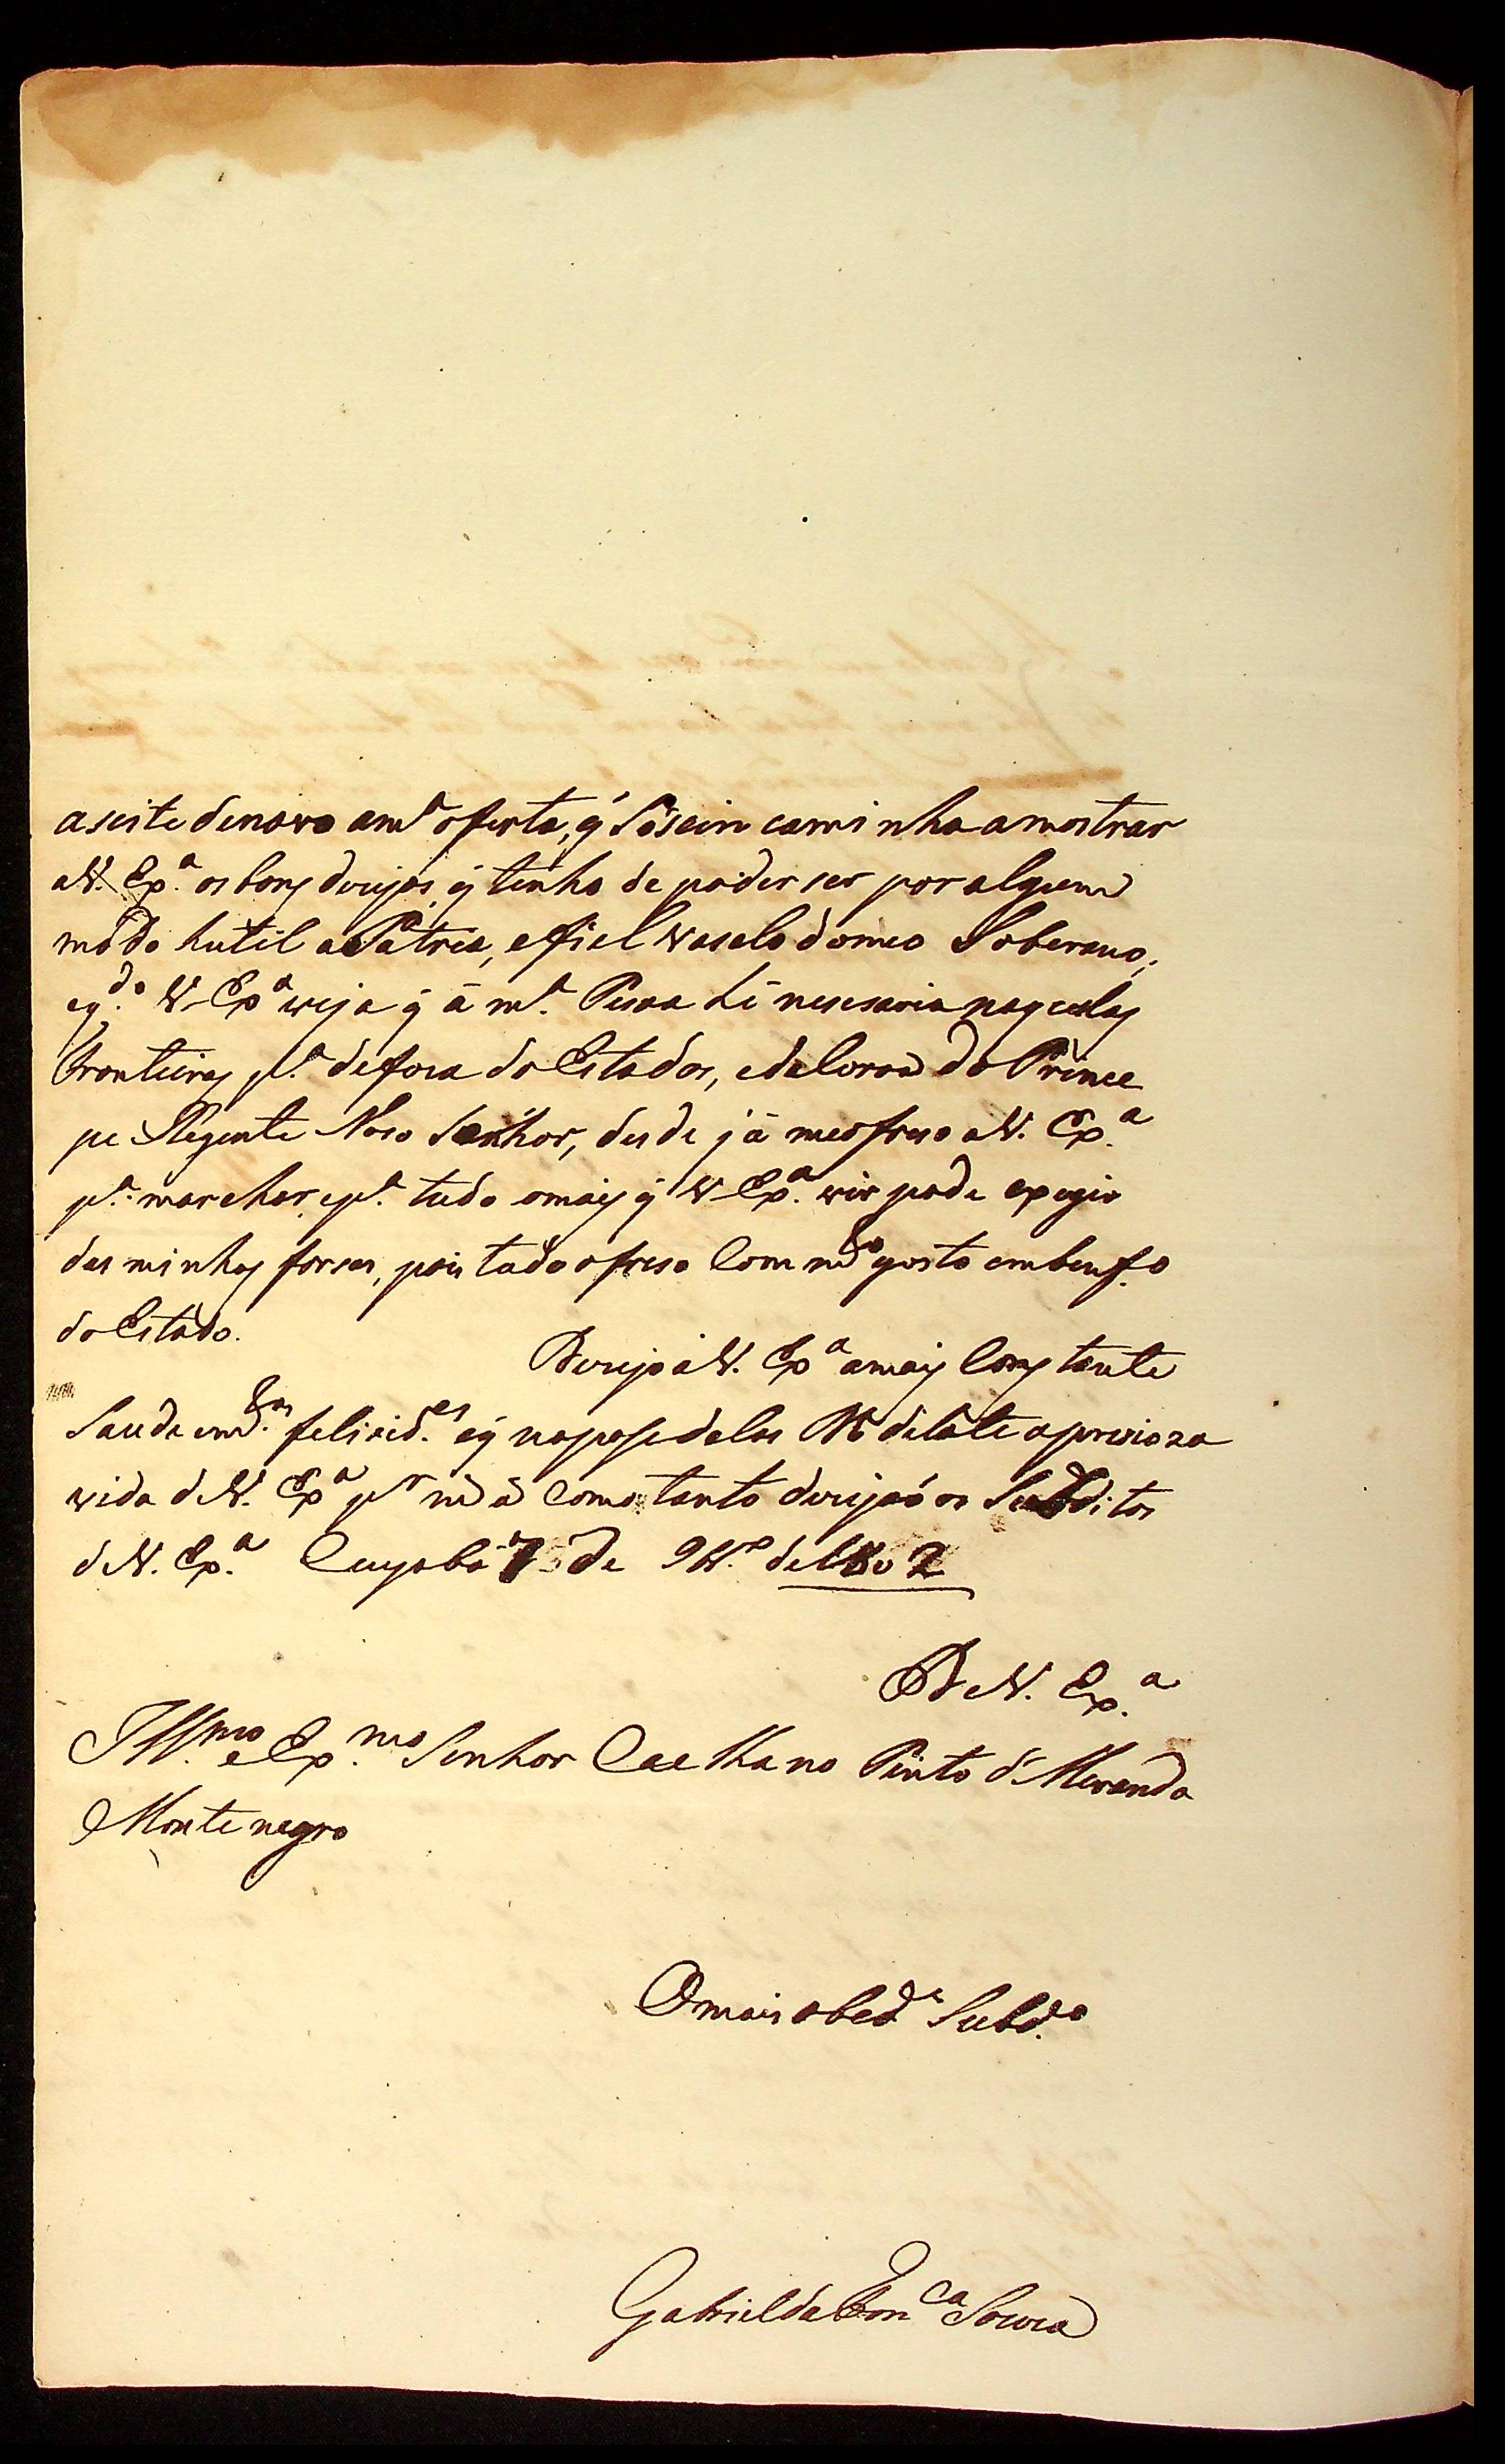 aseite denovo am.ª oferta, q̃ Sósein caminha amostrar
aV. Ex.ª os bons dezejos, q̃ tenho de poder ser por algum
módo hutil aPatria, efiel vasalo domeo Soberano,
eq.do V. Ex.ª veja q̃ á m.ª Pesoa hé nesesaria naquelas
fronteiras p.ª defeza do Estados, eda Coroa do Prince
pe Regente Noso Senhor, desde já meofreso aV. Ex.ª
p.ª marchar, ep.ª tudo omais q̃ V. Ex.ª vir pode exegir
das minhas forsas, pois tudo ofreso Com m.to gosto em benf.o
do Estado.
Dezejo áV. Ex.ª amais Constante
Saude em.tas felicid.es eq̃ naposse delas dilate apresioza
vida deV. Ex.ª Como tanto dezejaó os Subditos
deV. Ex.ª Cuyabá 7 de 9br.o de1802
DeV. Ex.ª
Ill.mo e Ex.mo Senhor Caethano Pinto d'Meranda
Montenegro
Omais obed.e Subd.o
Gabriel da Fon.ca Souza